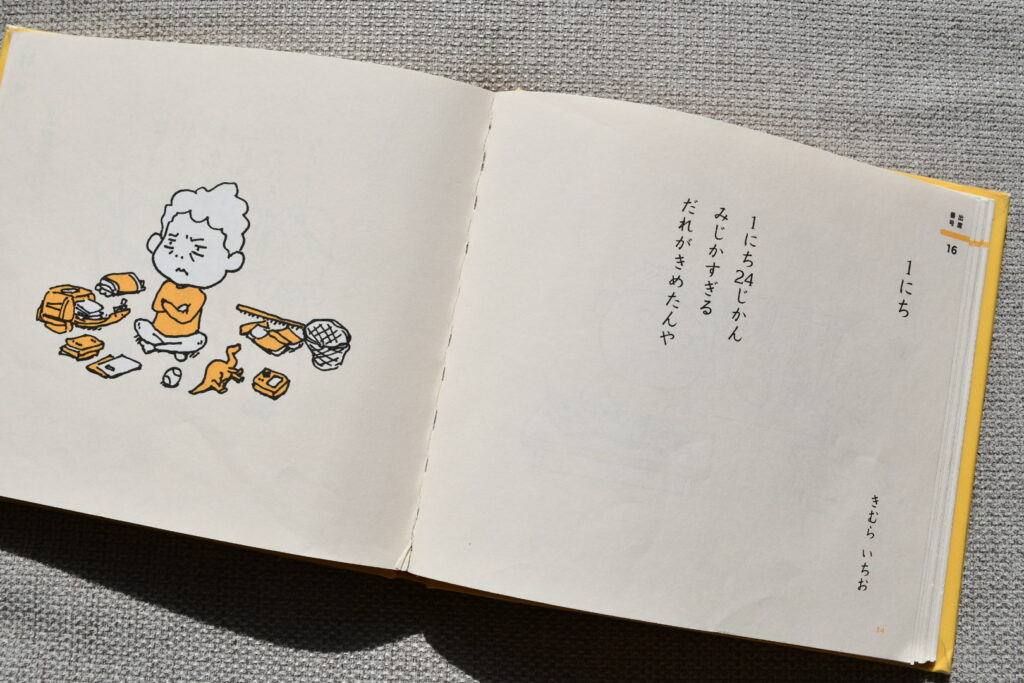 出席
番号
16
1にち
きむら いちお
1にち24じかん
みじかすぎる
だれがきめたんや